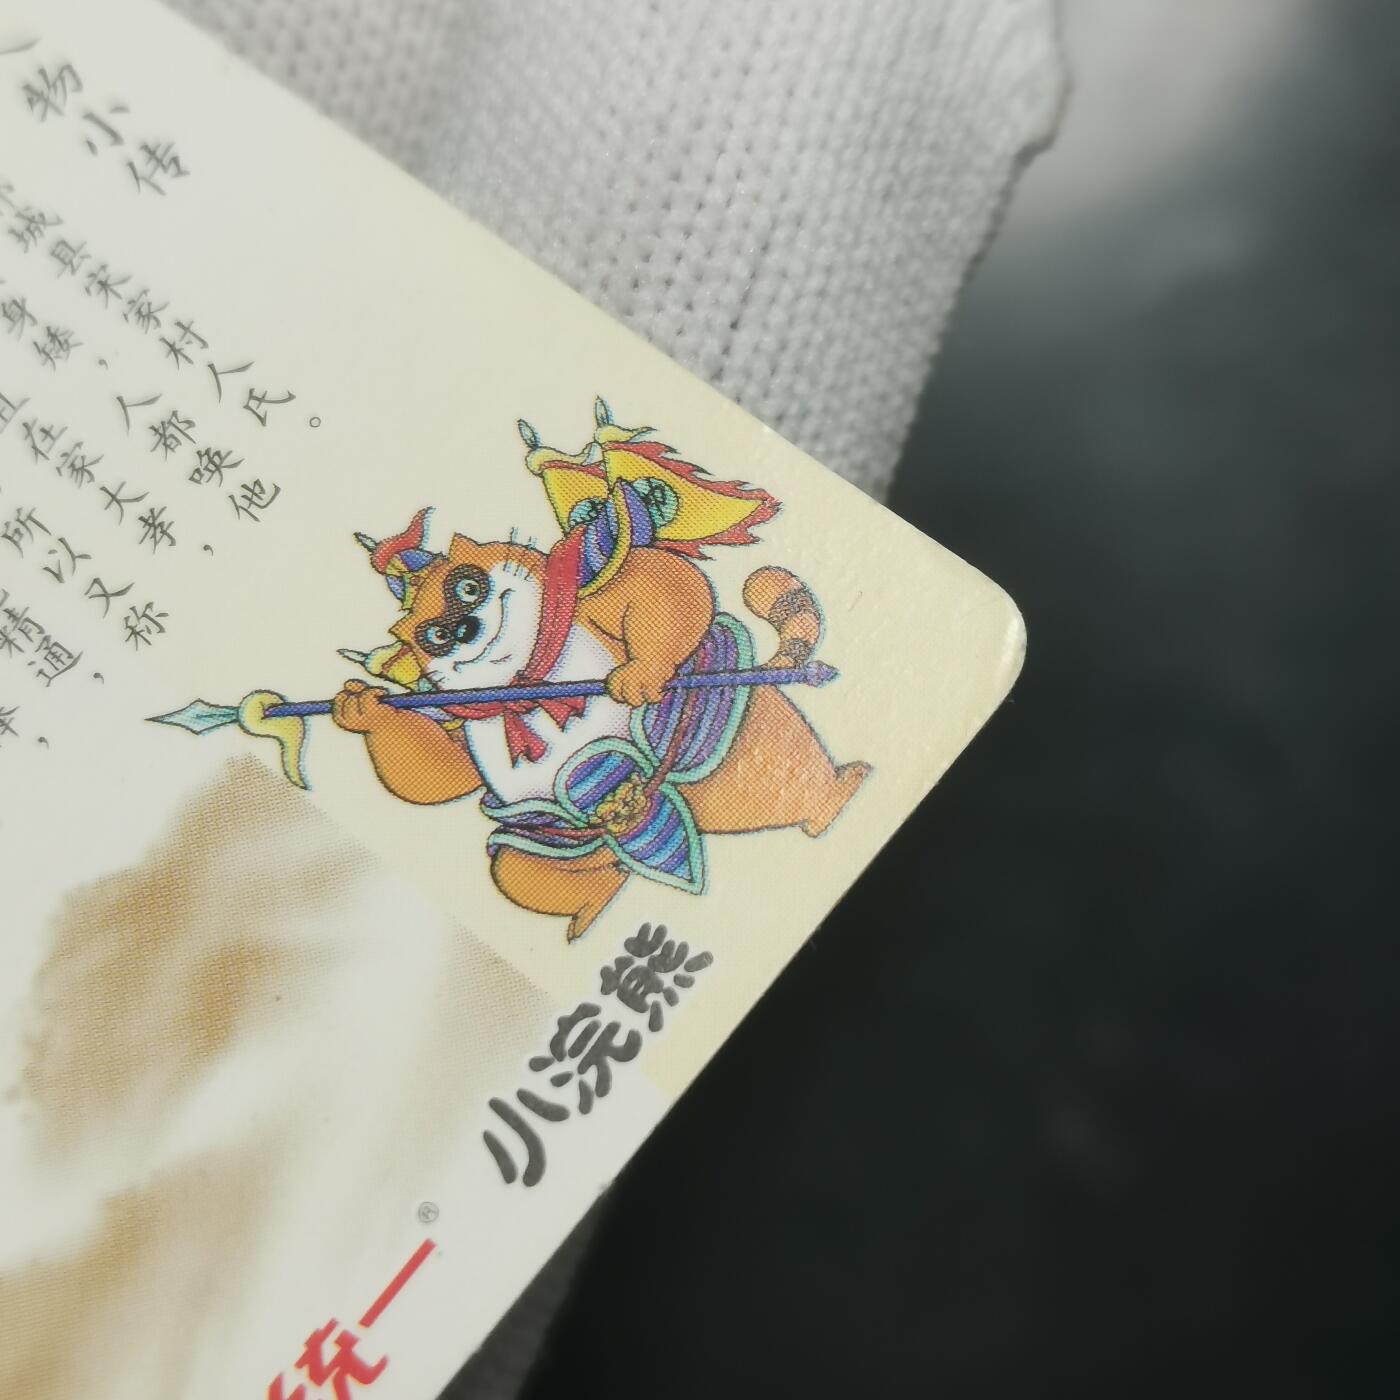 物小传
城县宋家村人氏。
身矮，人都唤他
且在家大孝，
所以又称
精通，
小浣熊
统一®